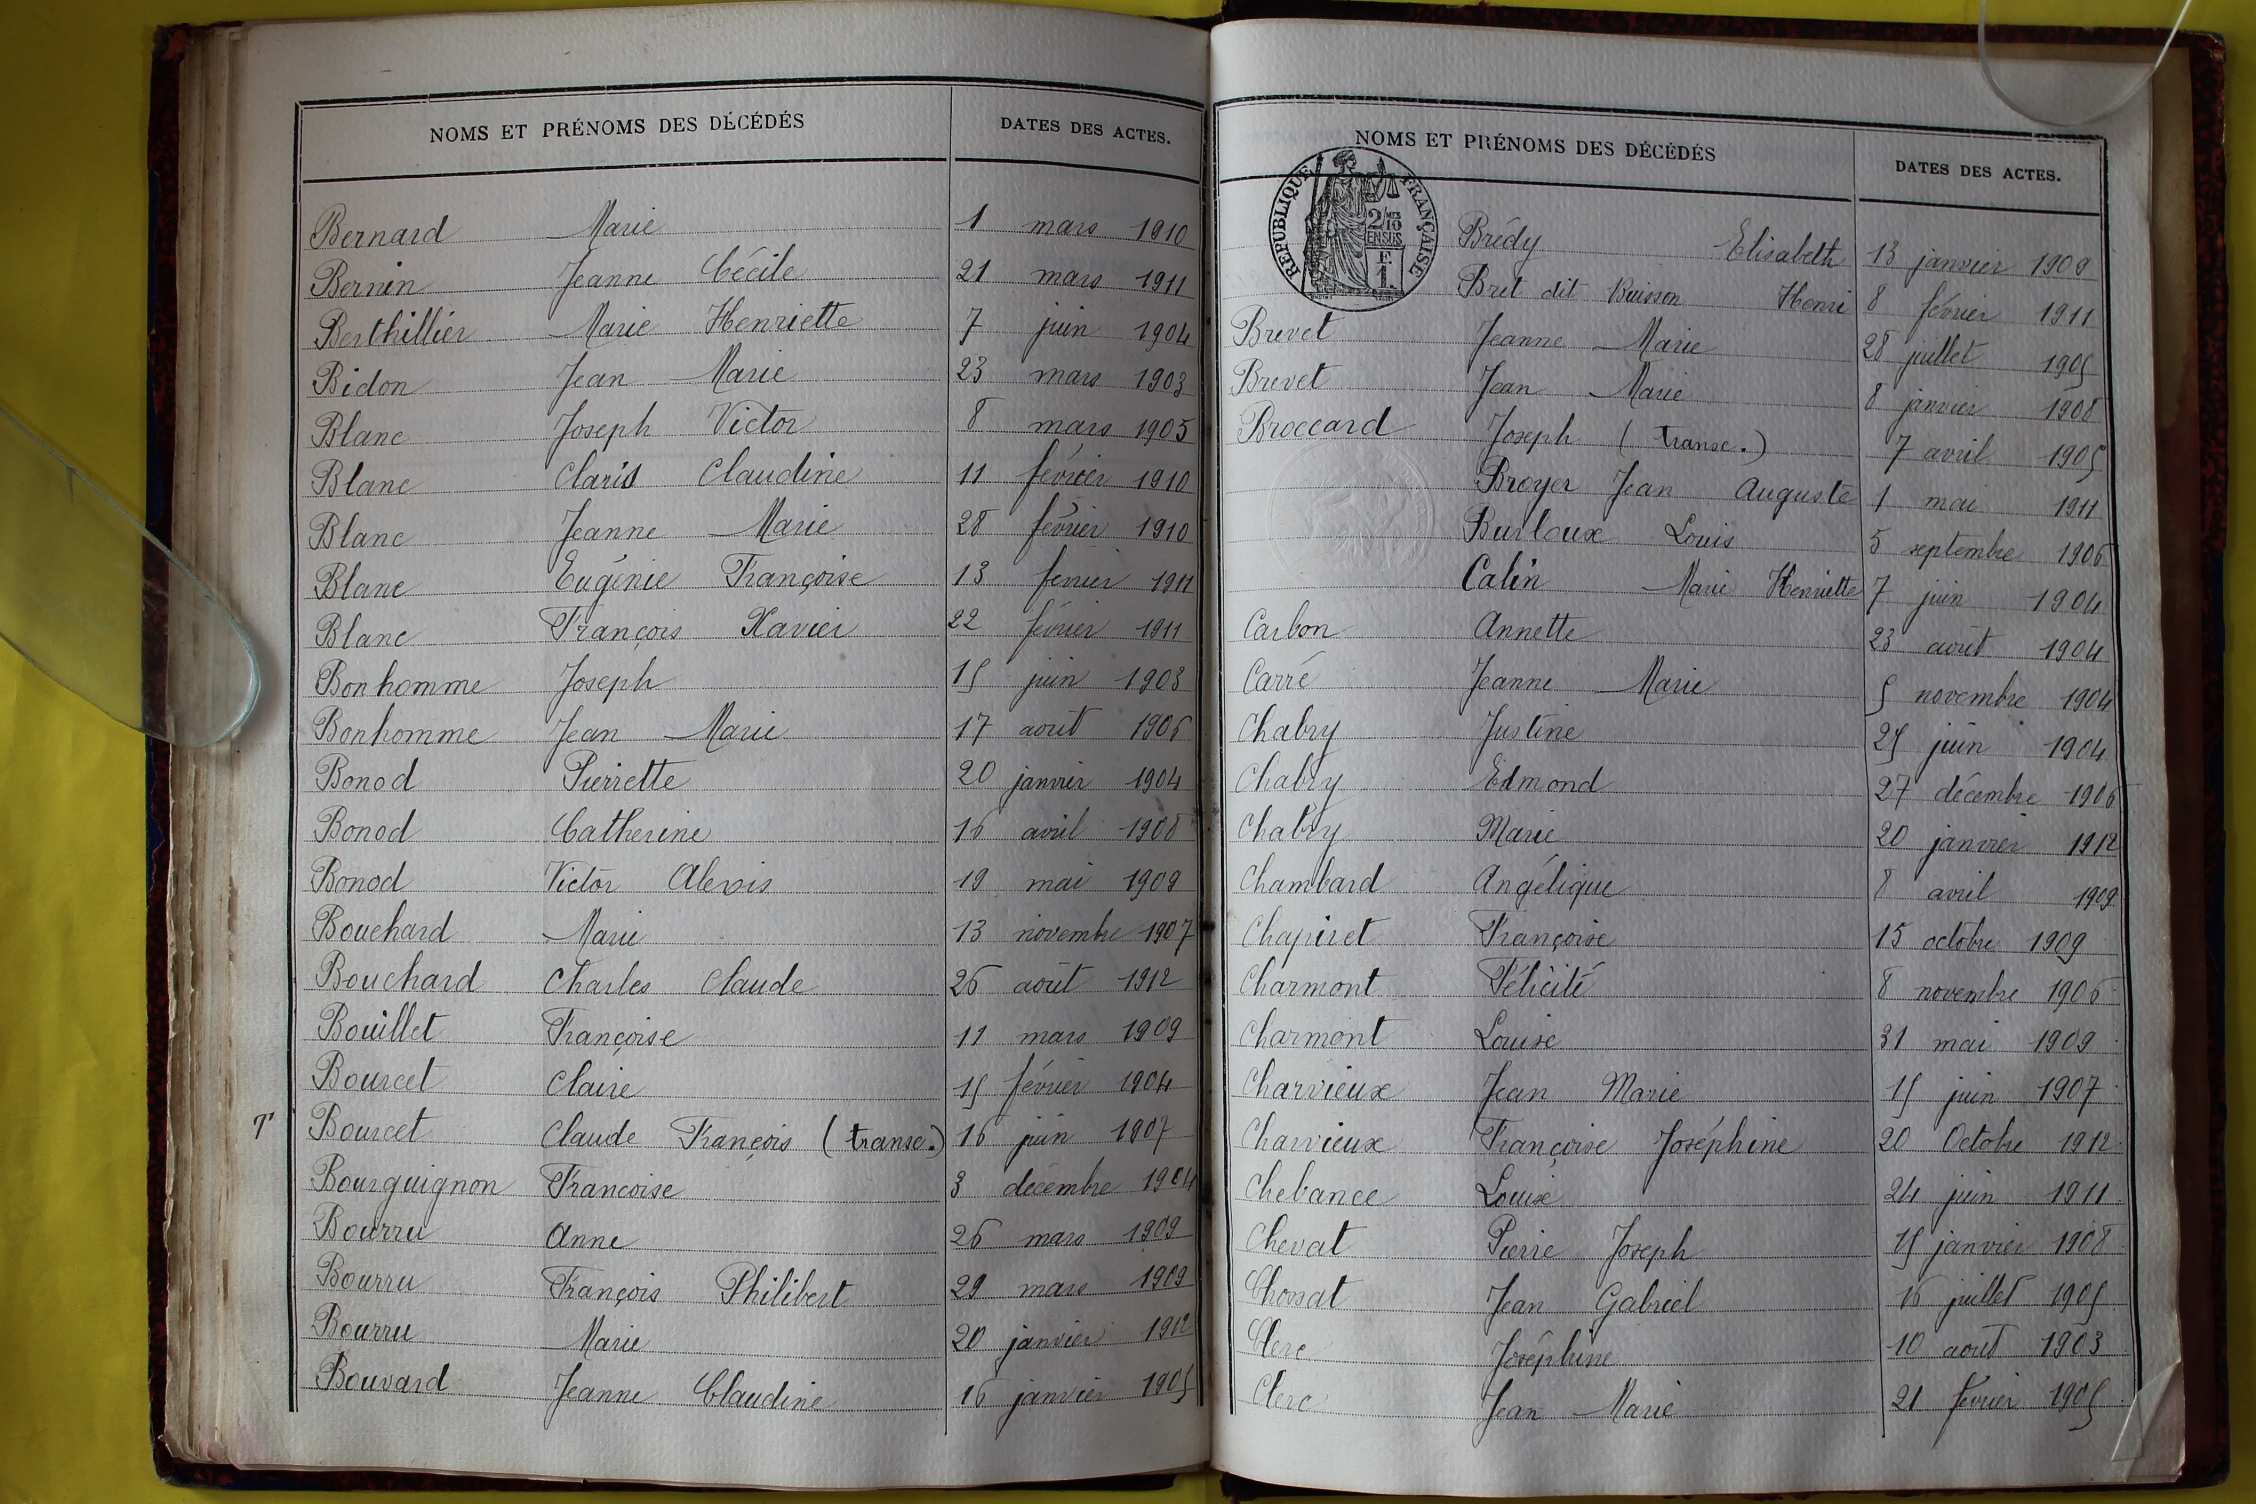 NOMS ET PRÉNOMS DES DÉCÉDÉS DATES DES ACTES.
Bernard Marie 1 mars 1910
Bernin Jeanne Cécile 21 mars 1911
Berthillier Marie Henriette 7 juin 1904
Bidon Jean Marie 23 mars 1903
Blanc Joseph Victor 8 mars 1905
Blanc Claris Claudine 11 février 1910
Blanc Jeanne Marie 28 février 1910
Blanc Eugénie Françoise 13 février 1911
Blanc François Xavier 22 février 1911
Bonhomme Joseph 15 juin 1903
Bonhomme Jean Marie 17 août 1906
Bonod Pierrette 20 janvier 1904
Bonod Catherine 16 avril 1908
Bonod Victor Alexis 19 mai 1909
Bouchard Marie 13 novembre 1907
Bouchard Charles Claude 26 août 1912
Bouillet Françoise 11 mars 1909
Bourcet Claire 15 février 1904
T Bourcet Claude François (transc.) 16 juin 1907
Bourguignon Francoise 3 décembre 1904
Bourru Anne 26 mars 1909
Bourru François Philibert 29 mars 1909
Bourru Marie 20 janvier 1912
Bouvard Jeanne Claudine 16 janvier 1905
NOMS ET PRÉNOMS DES DÉCÉDÉS DATES DES ACTES.
RÉPUBLIQUE FRANÇAISE
2/10 MES
EN SUS
F.
1.
Brédy Elisabeth 13 janvier 1909
Bret dit Buisson Henri 8 février 1911
Brevet Jeanne Marie 28 juillet 1905
Brevet Jean Marie 8 janvier 1908
Broccard Joseph (transc.) 7 avril 1905
Broyer Jean Auguste 1 mai 1911
Burloux Louis 5 septembre 1906
Calin Marie Henriette 7 juin 1904
Carbon Annette 23 août 1904
Carré Jeanne Marie 5 novembre 1904
Chabry Justine 25 juin 1904
Chabry Edmond 27 décembre 1906
Chabry Marie 20 janvier 1912
Chambard Angélique 8 avril 1909
Chapiret Françoise 15 octobre 1909
Charmont Félicité 8 novembre 1906
Charmont Louise 31 mai 1909
Charvieux Jean Marie 15 juin 1907
Charvieux Françoise Joséphine 20 Octobre 1912
Chebance Louise 24 juin 1911
Chevat Pierre Joseph 15 janvier 1908
Chossat Jean Gabriel 16 juillet 1905
Clerc Joséphine 10 août 1903
Clerc Jean Marie 21 février 1905